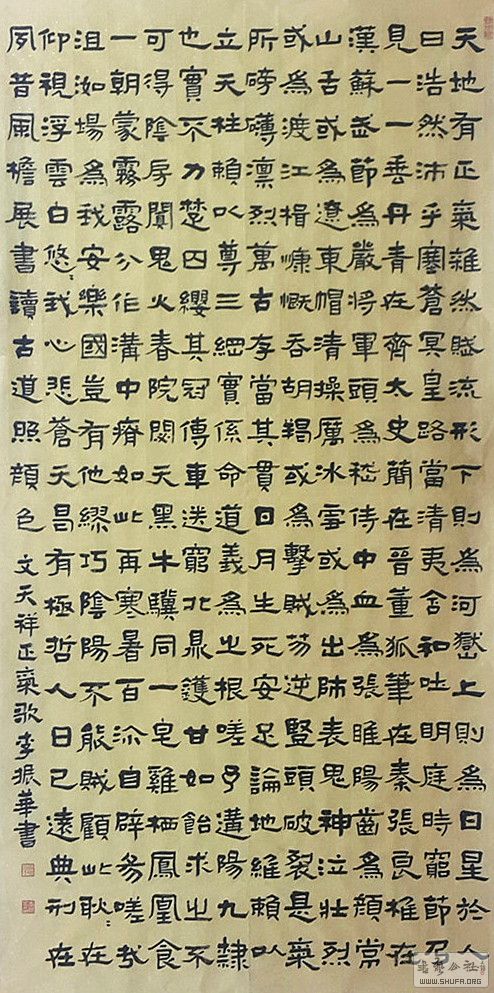 天地有正氣雜然賦流形下則為河嶽上則為日星於人
曰浩然沛乎塞蒼冥皇路當清夷含和吐明庭時窮節乃
見一一垂丹青在齊太史簡在晉董狐筆在秦張良椎在
漢蘇武節為嚴將軍頭為嵇侍中血為張睢陽齒為顏常
山舌或為遼東帽清操厲冰雪或為出師表鬼神泣壯烈
或為渡江楫慷慨吞胡羯或為擊賊笏逆豎頭破裂是氣
所磅礴凜烈萬古存當其貫日月生死安足論地維賴以
立天柱賴以尊三綱實係命道義為之根嗟予遘陽九隸
也實不力楚囚纓其冠傳車送窮北鼎鑊甘如飴求之不
可得陰房闃鬼火春院閟天黑牛驥同一皂雞栖鳳凰食
一朝蒙霧露分作溝中瘠如此再寒暑百沴自辟易嗟哉
沮洳場為我安樂國豈有他繆巧陰陽不能賊顧此耿〻在
仰視浮雲白悠〻我心悲蒼天曷有極哲人日已遠典刑在
夙昔風檐展書讀古道照顏色 文天祥正氣歌李振華書
WWW.SHUFA.ORG